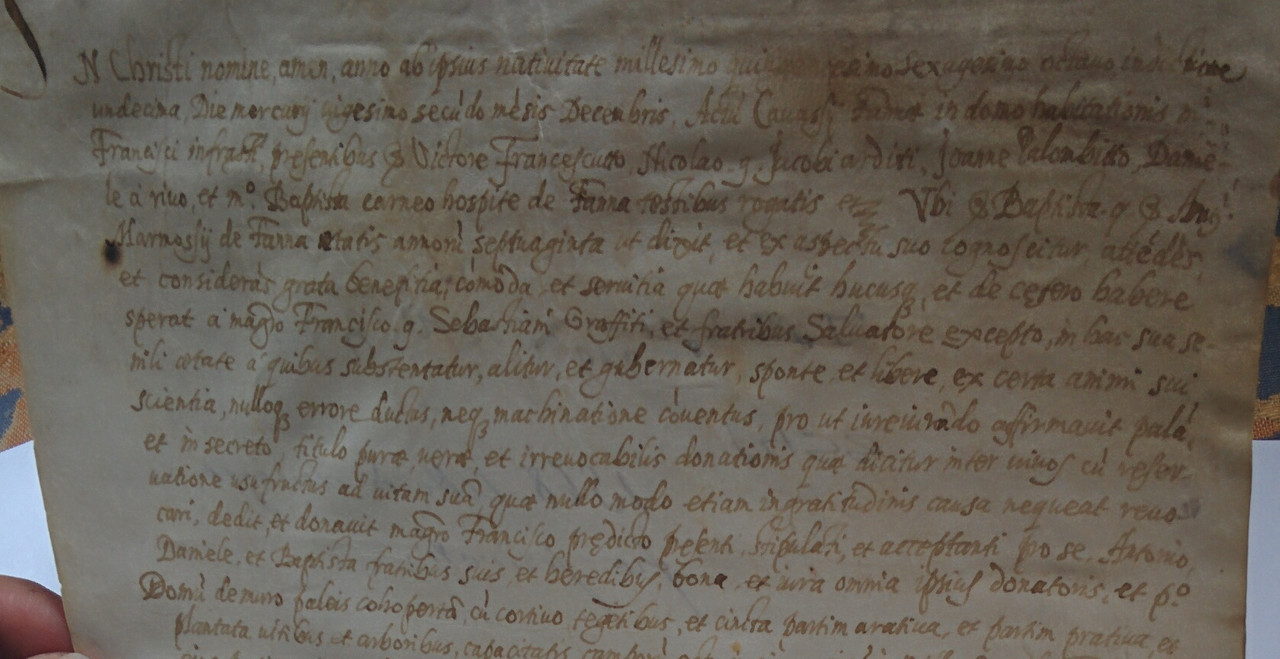 N Christi nomine, amen, anno ab ipsius nativitate millesimo sexagesimo octavo indictione
undecima, Die mercurÿ vigesimo secūdo mēsis Decembris, Actū Cavasÿ Fannæ in domo habitationis
Francisci infratti, presentibus Victore Francescutto, Nicolao q. Jacobi arditi, Joanne Palombitto, Danie-
le à rivo, et m.º Baptista carneo hospite de Fanna testibus rogatis et Vbi Baptista q.
Marmossÿ de Fanna ætatis annorū septuaginta ut dixit, et ex aspectu suo cognoscitur, atēdēs,
et considerās grata benefitia, cōmoda, et servitia quæ habuit hucusq3, et de cętero habere
sperat a magro Francisco q. Sebastiani Graffiti, et fratribus Salvatore excepto, in hac sua se-
nili ætate á quibus substentatur, alitur, et gubernatur, sponte, et libere, ex certa animi sui
scientia, nulloq3 errore ductus, neq3 machinatione cōventus, pro ut iureiurādo affirmavit palā,
et in secreto, titulo puræ, veræ, et irrevocabilis donationis quæ dicitur inter vivos cū reser-
vatione usufructus ad vitam suā, quæ nullo modo etiam ingratitudinis causa nequeat revo-
cari, dedit, et donavit magro Francisco prędicto presenti, stipulāti, et acceptanti pro se, Antonio,
Daniele, et Baptista fratribus suis, et heredibus, bona, et iura omnia ipsius donatoris, et p.º
Domū de muro paleis cohopertā, cū cortivo, tegetibus, et cincta partim arativa, et partim prativa et
plantata vitibus et arboribus, capacitatis camporū